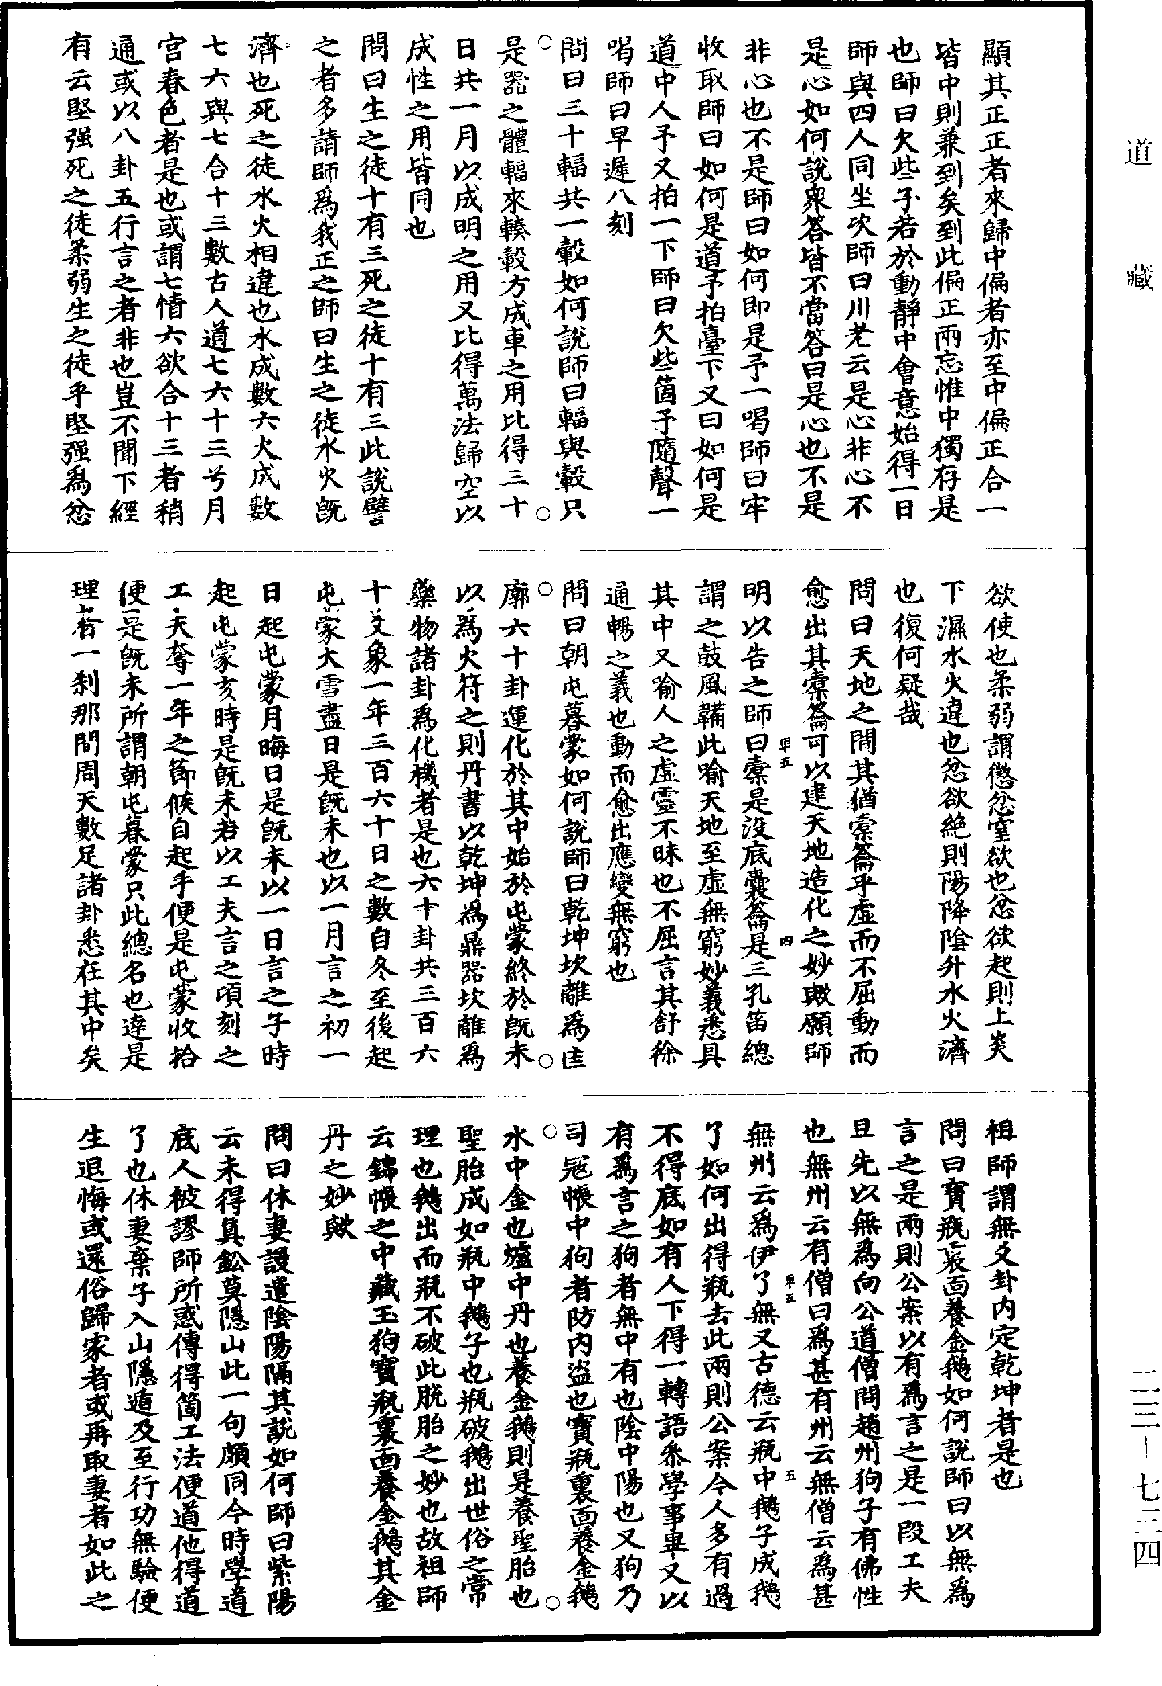 道藏
顯其正正者來歸中偏者亦至中偏正合一
皆中則兼到矣到此偏正兩忘惟中獨存是
也師曰欠些子若於動靜中會意始得一日
師與四人同坐次師曰川老云是心非心不
是心如何說衆答皆不當答曰是心也不是
非心也不是師曰如何即是予一喝師曰牢
收取師曰如何是道予拍臺下又曰如何是
道中人予又拍一下師曰欠些箇子隨聲一
喝師曰早遲八刻
問曰三十輻共一轂如何說師曰輻與轂只
是器之體輻來輳轂方成車之用比得三十
日共一月以成明之用又比得萬法歸空以
成性之用皆同也
問曰生之徒十有三死之徒十有三此說譬
之者多請師爲我正之師曰生之徒水火旣
濟也死之徒水火相違也水成數六火成數
七六與七合十三數古人道七六十三兮月
宮春色者是也或謂七情六欲合十三者稍
通或以八卦五行言之者非也豈不聞下經
有云堅强死之徒柔弱生之徒乎堅强爲忿
欲使也柔弱謂懲忿窒欲也忿欲起則上炎
下濕水火違也忿欲絕則陽降陰升水火濟
也復何疑哉
問曰天地之間其猶橐籥乎虛而不屈動而
愈出其橐籥可以建天地造化之妙歟願師
明以告之師曰橐是沒底囊籥是三孔笛總
謂之鼓風韛此喻天地至虛無窮妙義悉具
其中又喻人之虛靈不昧也不屈言其舒徐
通暢之義也動而愈出應變無窮也
問曰朝屯暮蒙如何說師曰乾坤坎離爲匡
廓六十卦運化於其中始於屯蒙終於旣未
以爲火符之則丹書以乾坤爲鼎器坎離爲
藥物諸卦爲化機者是也六十卦共三百六
十爻象一年三百六十日之數自冬至後起
屯蒙大雪盡日是旣未也以一月言之初一
日起屯蒙月晦日是旣未以一日言之子時
起屯蒙亥時是旣未若以工夫言之頃刻之
工夫奪一年之節候自起手便是屯蒙收拾
便是旣未所謂朝屯暮蒙只此總名也達是
理者一刹那間周天數足諸卦悉在其中矣
祖師謂無爻卦內定乾坤者是也
問曰寶瓶裏面養金鵝如何說師曰以無爲
言之是兩則公案以有爲言之是一段工夫
旦先以無爲向公道僧問趙州狗子有佛性
也無州云有僧曰爲甚有州云無僧云爲甚
無州云爲伊了無又古德云瓶中鵝子成鵝
了如何出得瓶去此兩則公案今人多有過
不得底如有人下得一轉語叅學事畢又以
有爲言之狗者無中有也陰中陽也又狗乃
司冦帳中狗者防內盜也寶瓶裏面養金鵝
水中金也爐中丹也養金鵝則是養聖胎也
聖胎成如瓶中鵝子也瓶破鵝出世俗之常
理也鵝出而瓶不破此脫胎之妙也故祖師
云錦帳之中藏玉狗寶瓶裏面養金鵝其金
丹之妙歟
問曰休妻謾遣陰陽隔其說如何師曰紫陽
云未得眞鈆莫隱山此一句頗同今時學道
底人被謬師所惑傳得箇工法便道他得道
了也休妻棄子入山隱遁及至行功無驗便
生退悔或還俗歸家者或再取妻者如此之
二三-七三四